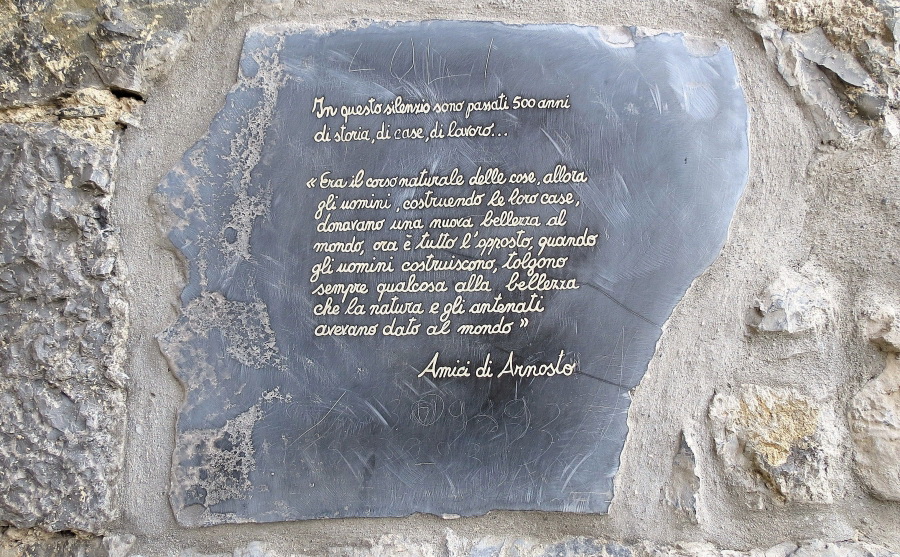 In questo silenzio sono passati 500 anni
di storia, di case, di lavoro...
« Era il corso naturale delle cose, allora
gli uomini, costruendo le loro case,
donavano una nuova bellezza al
mondo, ora è tutto l'opposto, quando
gli uomini costruiscono, tolgono
sempre qualcosa alla bellezza
che la natura e gli antenati
avevano dato al mondo »
Amici di Arnosto